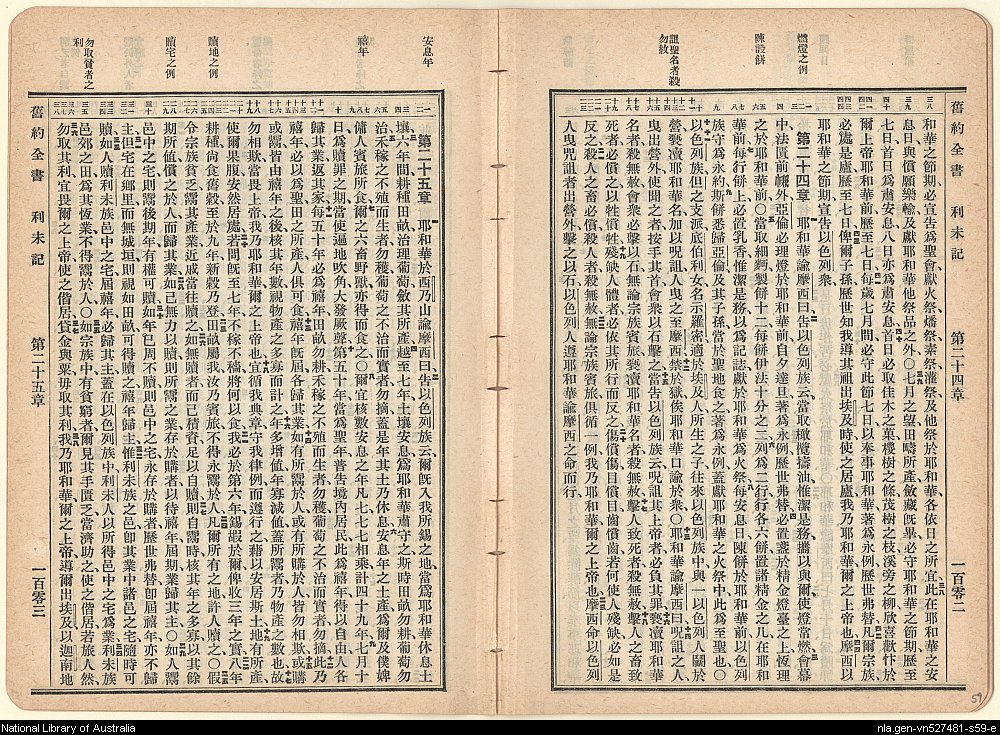 燃燈之例
陳設餅
詛聖名者殺
勿赦
舊約全書 利未記 第二十四章 一百零二
和華之節期必宣告爲聖會獻火祭燔祭素祭灌祭及他祭於耶和華各依日之所宜此在耶和華之安
息日與償願樂輸及獻耶和華他祭品之外〇七月之望田疇所產斂藏旣畢必守耶和華之節期歷至
七日首日爲肅安息八日亦爲肅安息首日必取佳木之菓椶樹之條茂樹之枝溪旁之柳欣喜歡忭於
爾上帝耶和華前歷至七日每歲七月間必守此節七日以奉事耶和華著爲永例歷世弗替凡爾宗族
必處是廬歷至七日俾爾子孫歷世知我導其祖出埃及時使之居廬我乃耶和華爾之上帝也摩西以
耶和華之節期宣告以色列衆
第二十四章 耶和華諭摩西曰告以色列族云當取橄欖擣油惟潔是務攜以與爾使燈常燃會幕
中法匱前幬外亞倫必理燈於耶和華前自夕達旦著爲永例歷世弗替必置盞於精金燈臺之上恆理
之於耶和華前〇當取細麪製餅十二每餅伊法十分之二列爲二行行各六餅置諸精金之几在耶和
華前每行餅上必置乳香惟潔是務以爲記誌獻於耶和華爲火祭每安息日陳餅於耶和華前以色列
族守爲永約斯餅悉歸亞倫及其子孫當於聖地食之著爲永例蓋獻耶和華之火祭中此爲至聖也〇
以色列族但之支派底伯利女名示羅密適於埃及人所生之子往來以色列族中與一以色列人鬭於
營褻瀆耶和華名加以呪詛人曳之至摩西禁於獄俟耶和華口諭於衆〇耶和華諭摩西曰呪詛之人
曳出營外使聞之者按手其首會衆以石擊之當告以色列族云呪詛其上帝者必負其罪褻瀆耶和華
名者殺無赦會衆必擊以石無論宗族賓旅褻瀆耶和華名者殺無赦擊人致死者殺無赦擊人之畜致
死者必償之以牲償牲殘缺人體者必依其所行而反之傷償傷目償目齒償齒若何使人殘缺必如是
反之殺人之畜必償殺人者殺無赦無論宗族賓旅俱循一例我乃耶和華爾之上帝也摩西命以色列
人曳呪詛者出營外擊之以石以色列人遵耶和華諭摩西之命而行
安息年
禧年
贖地之例
贖宅之例
勿取貧者之
利
第二十五章 耶和華於西乃山諭摩西曰告以色列族云爾旣入我所錫之地當爲耶和華休息土
壤六年間耕種田畝治理葡萄斂其所產越至七年土壤安息爲耶和華肅守之斯時田畝勿耕葡萄勿
治禾稼之不殖而生者勿穫葡萄之不治而實者勿摘蓋是年其土乃休息安息年之土產爲爾及僕婢
傭人賓旅所食爾之六畜野獸亦得而食之〇爾宜核數安息之年凡七七七相乘計四十九年七月十
日爲贖罪之期當使遍地吹角大發厥聲第五十年當爲聖年普告境內居民此爲禧年得以自由人各
歸其業返其家每五十年必爲禧年田畝勿耕禾稼之不殖而生者勿穫葡萄之不治而實者勿摘此乃
禧年必以爲聖田之所產人俱可食禧年旣屆各歸其業如有所鬻於人或有所購於人皆勿相欺或購
或鬻皆由禧年之後核其年數視物產之多寡而計之年多增値年寡減値蓋所鬻者乃物產之數也故
勿相欺當畏上帝我乃耶和華爾之上帝也宜循我典章守我律例而遵行之藉以安居斯土地有所產
使爾果腹安然居處若問旣至七年不稼不穡將何以食我必於第六年錫嘏於爾俾收三年之實八年
耕種尙食舊穀至於九年新穀乃登田畝屬我汝乃賓旅不得永鬻於人凡爾所有之地許人贖之〇假
令宗族貧乏鬻其產業近戚當往贖之如無贖者而已積資足以自贖則自鬻時核其年之多寡以其餘
期所値償之於人而歸其業如已無力以贖則所鬻之業存於購者以待禧年屆期業歸其主〇如人鬻
邑中之宅則鬻後期年有權可贖如年已周不贖則邑中之宅永存於購者歷世弗替卽屆禧年亦不歸
主但宅在鄉里而無城垣則視如田畝可得贖之禧年歸主惟利未族之邑卽其業中諸邑之宅隨時可
贖如人贖利未族邑中之宅屆禧年必歸其主蓋在以色列族中利未人以所得邑中之宅爲業惟
邑郊之田爲其恆業不得鬻於人〇如宗族中有貧窮者爾見其手匱乏當濟助之使之偕居若旅人然
勿取其利宜畏爾之上帝使之偕居貸金與粟毋取其利我乃耶和華爾之上帝導爾出埃及以迦南地
舊約全書 利未記 第二十五章 一百零三
59
National Library of Australia
nla.gen-vn527481-s59-e